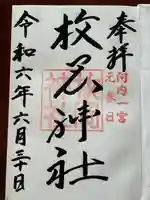 奉拝
河内一宮
元春日
枚岡神社
令和六年六月三十日